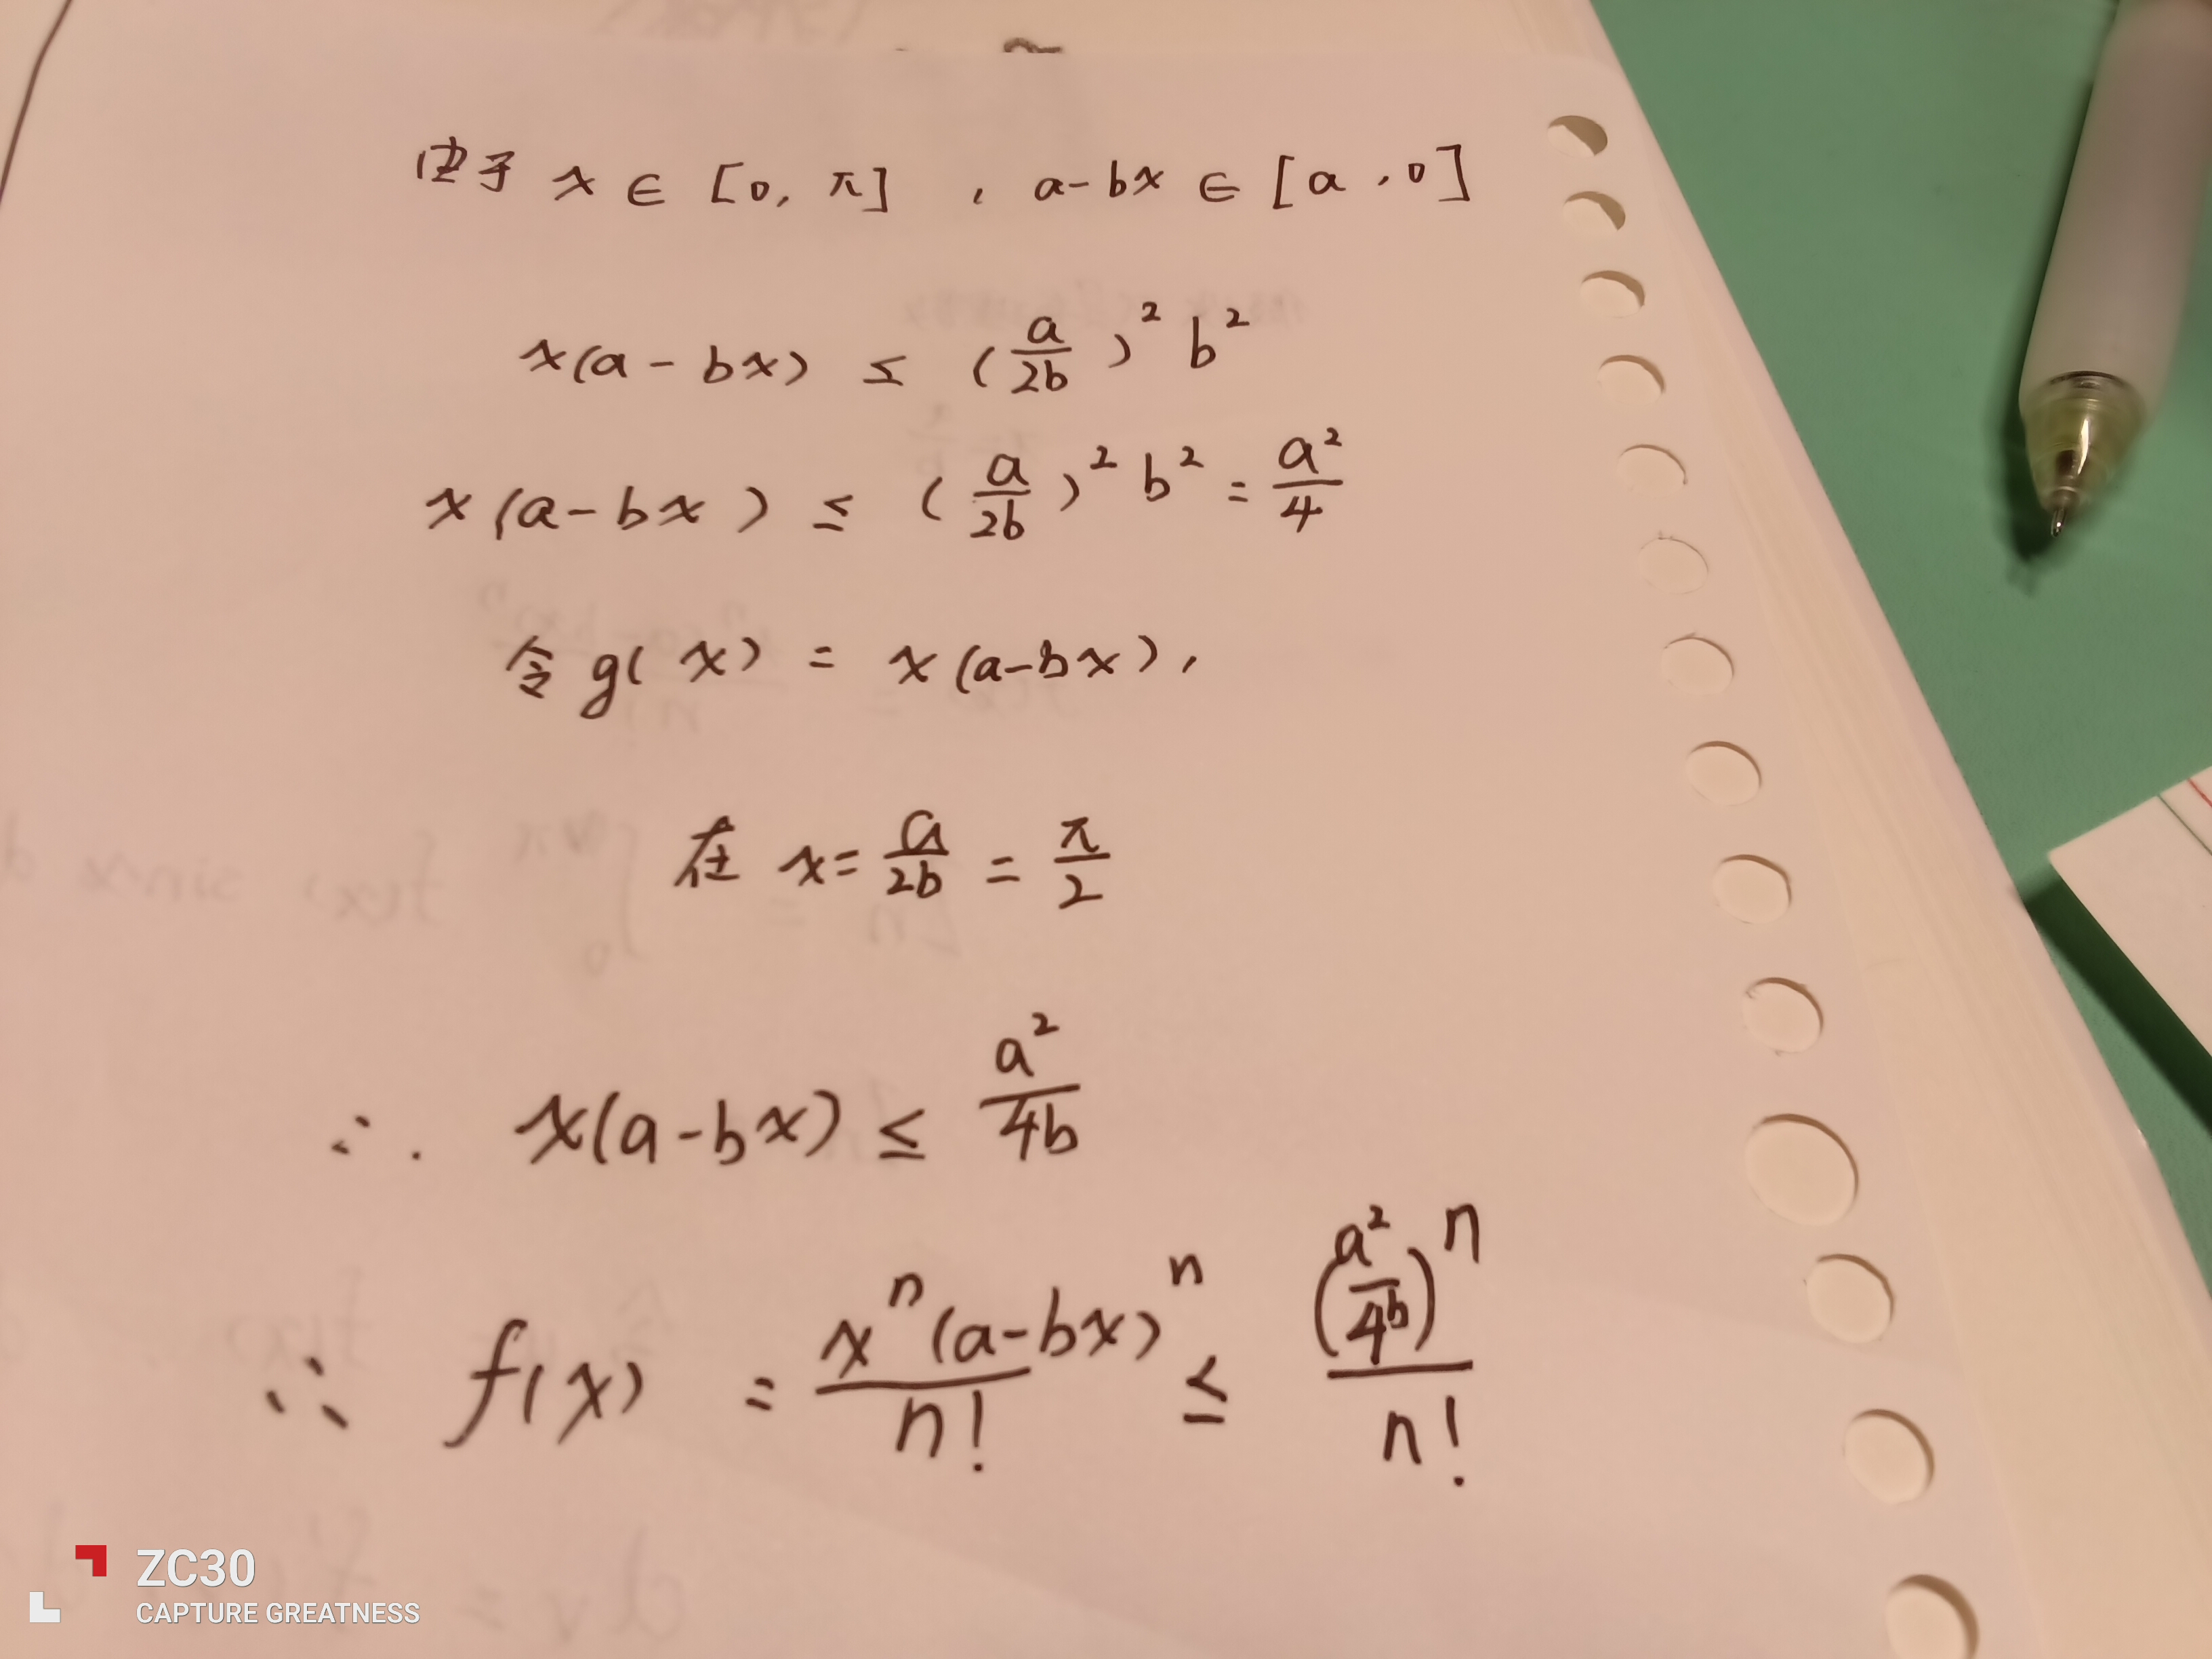 由于 x ∈ [0, π] , a-bx ∈ [a, 0]
x(a-bx) ≤ (a/2b)² b²
x(a-bx) ≤ (a/2b)² b² = a²/4
令 g(x) = x(a-bx),
在 x = a/2b = π/2
∴ x(a-bx) ≤ a²/4b
∴ f(x) = xⁿ(a-bx)ⁿ/n! ≤ (a²/4b)ⁿ/n!
ZC30
CAPTURE GREATNESS